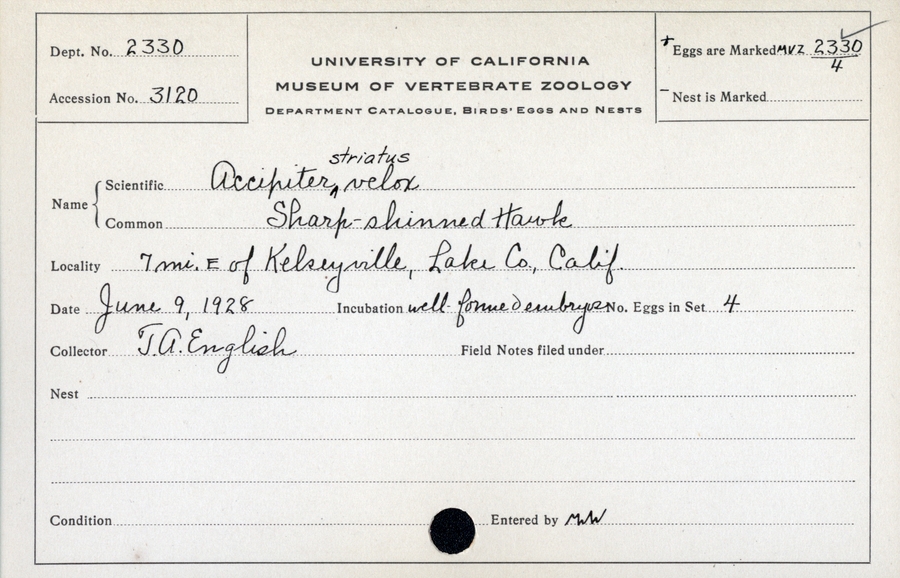 Dept. No. 2330
Accession No. 3120
UNIVERSITY OF CALIFORNIA
MUSEUM OF VERTEBRATE ZOOLOGY
DEPARTMENT CATALOGUE, BIRDS' EGGS AND NESTS
+ Eggs are Marked MVZ 2330
4
- Nest is Marked
striatus
Name Scientific Accipiter ^ velox
Common Sharp-shinned Hawk
Locality 7 mi. E of Kelseyville, Lake Co., Calif.
Date June 9, 1928 Incubation well-formed embryos No. Eggs in Set 4
Collector T.A. English Field Notes filed under
Nest
Condition Entered by MW